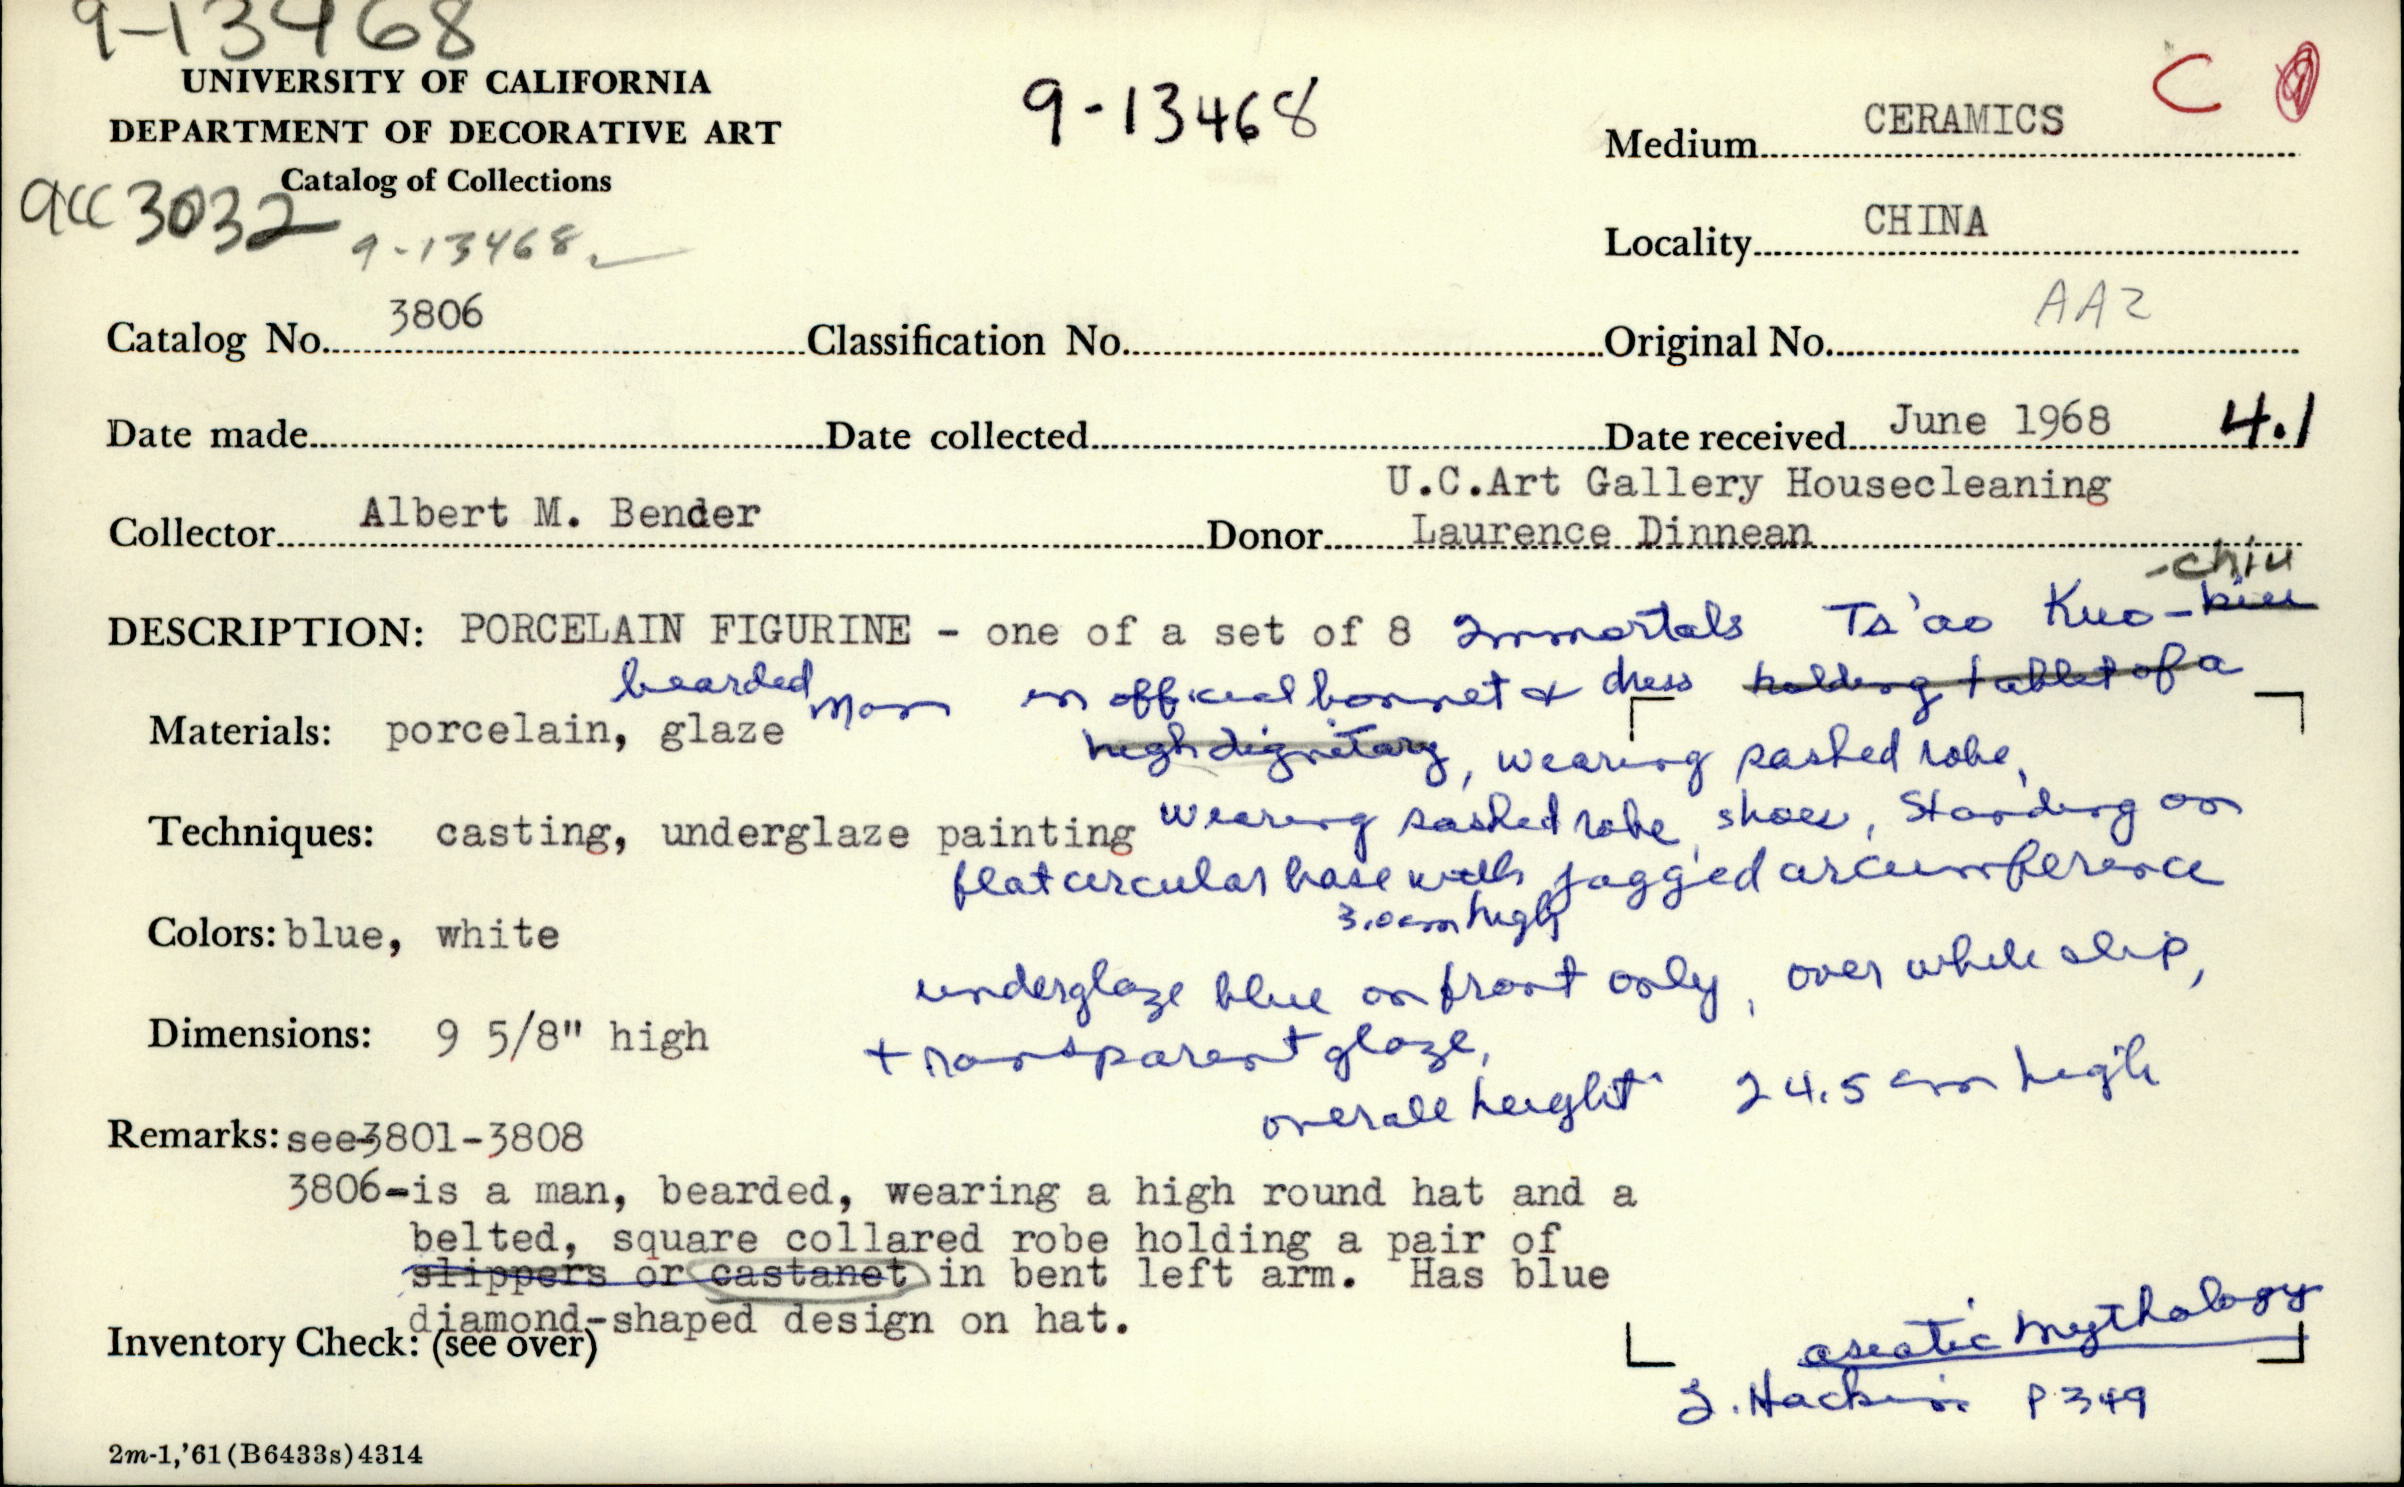 9-13468
UNIVERSITY OF CALIFORNIA
DEPARTMENT OF DECORATIVE ART
Catalog of Collections
acc 3032
9-13468
9-13468
C
Medium CERAMICS
Locality CHINA
Catalog No. 3806 Classification No. Original No. AA2
Date made Date collected Date received June 1968 4.1
Collector Albert M. Bender Donor U.C.Art Gallery Housecleaning
Laurence Dinnean
-chiu
DESCRIPTION: PORCELAIN FIGURINE - one of a set of 8 Immortals Ts'ao Kuo-kiu
bearded man in official bonnet & dress holding tablet of a
Materials: porcelain, glaze
high dignitary, wearing sashed robe,
Techniques: casting, underglaze painting wearing sashed robe, shoes, standing on
flat circular base with jagged circumference
3.0cm high
Colors: blue, white
underglaze blue on front only, over white slip,
Dimensions: 9 5/8" high
transparent glaze,
overall height 24.5 cm high
Remarks: see 3801-3808
3806-is a man, bearded, wearing a high round hat and a
belted, square collared robe holding a pair of
slippers or castanet in bent left arm. Has blue
diamond-shaped design on hat.
Inventory Check: (see over)
asiatic Mythology
J. Hackin P 349
2m-1,'61(B6433s)4314